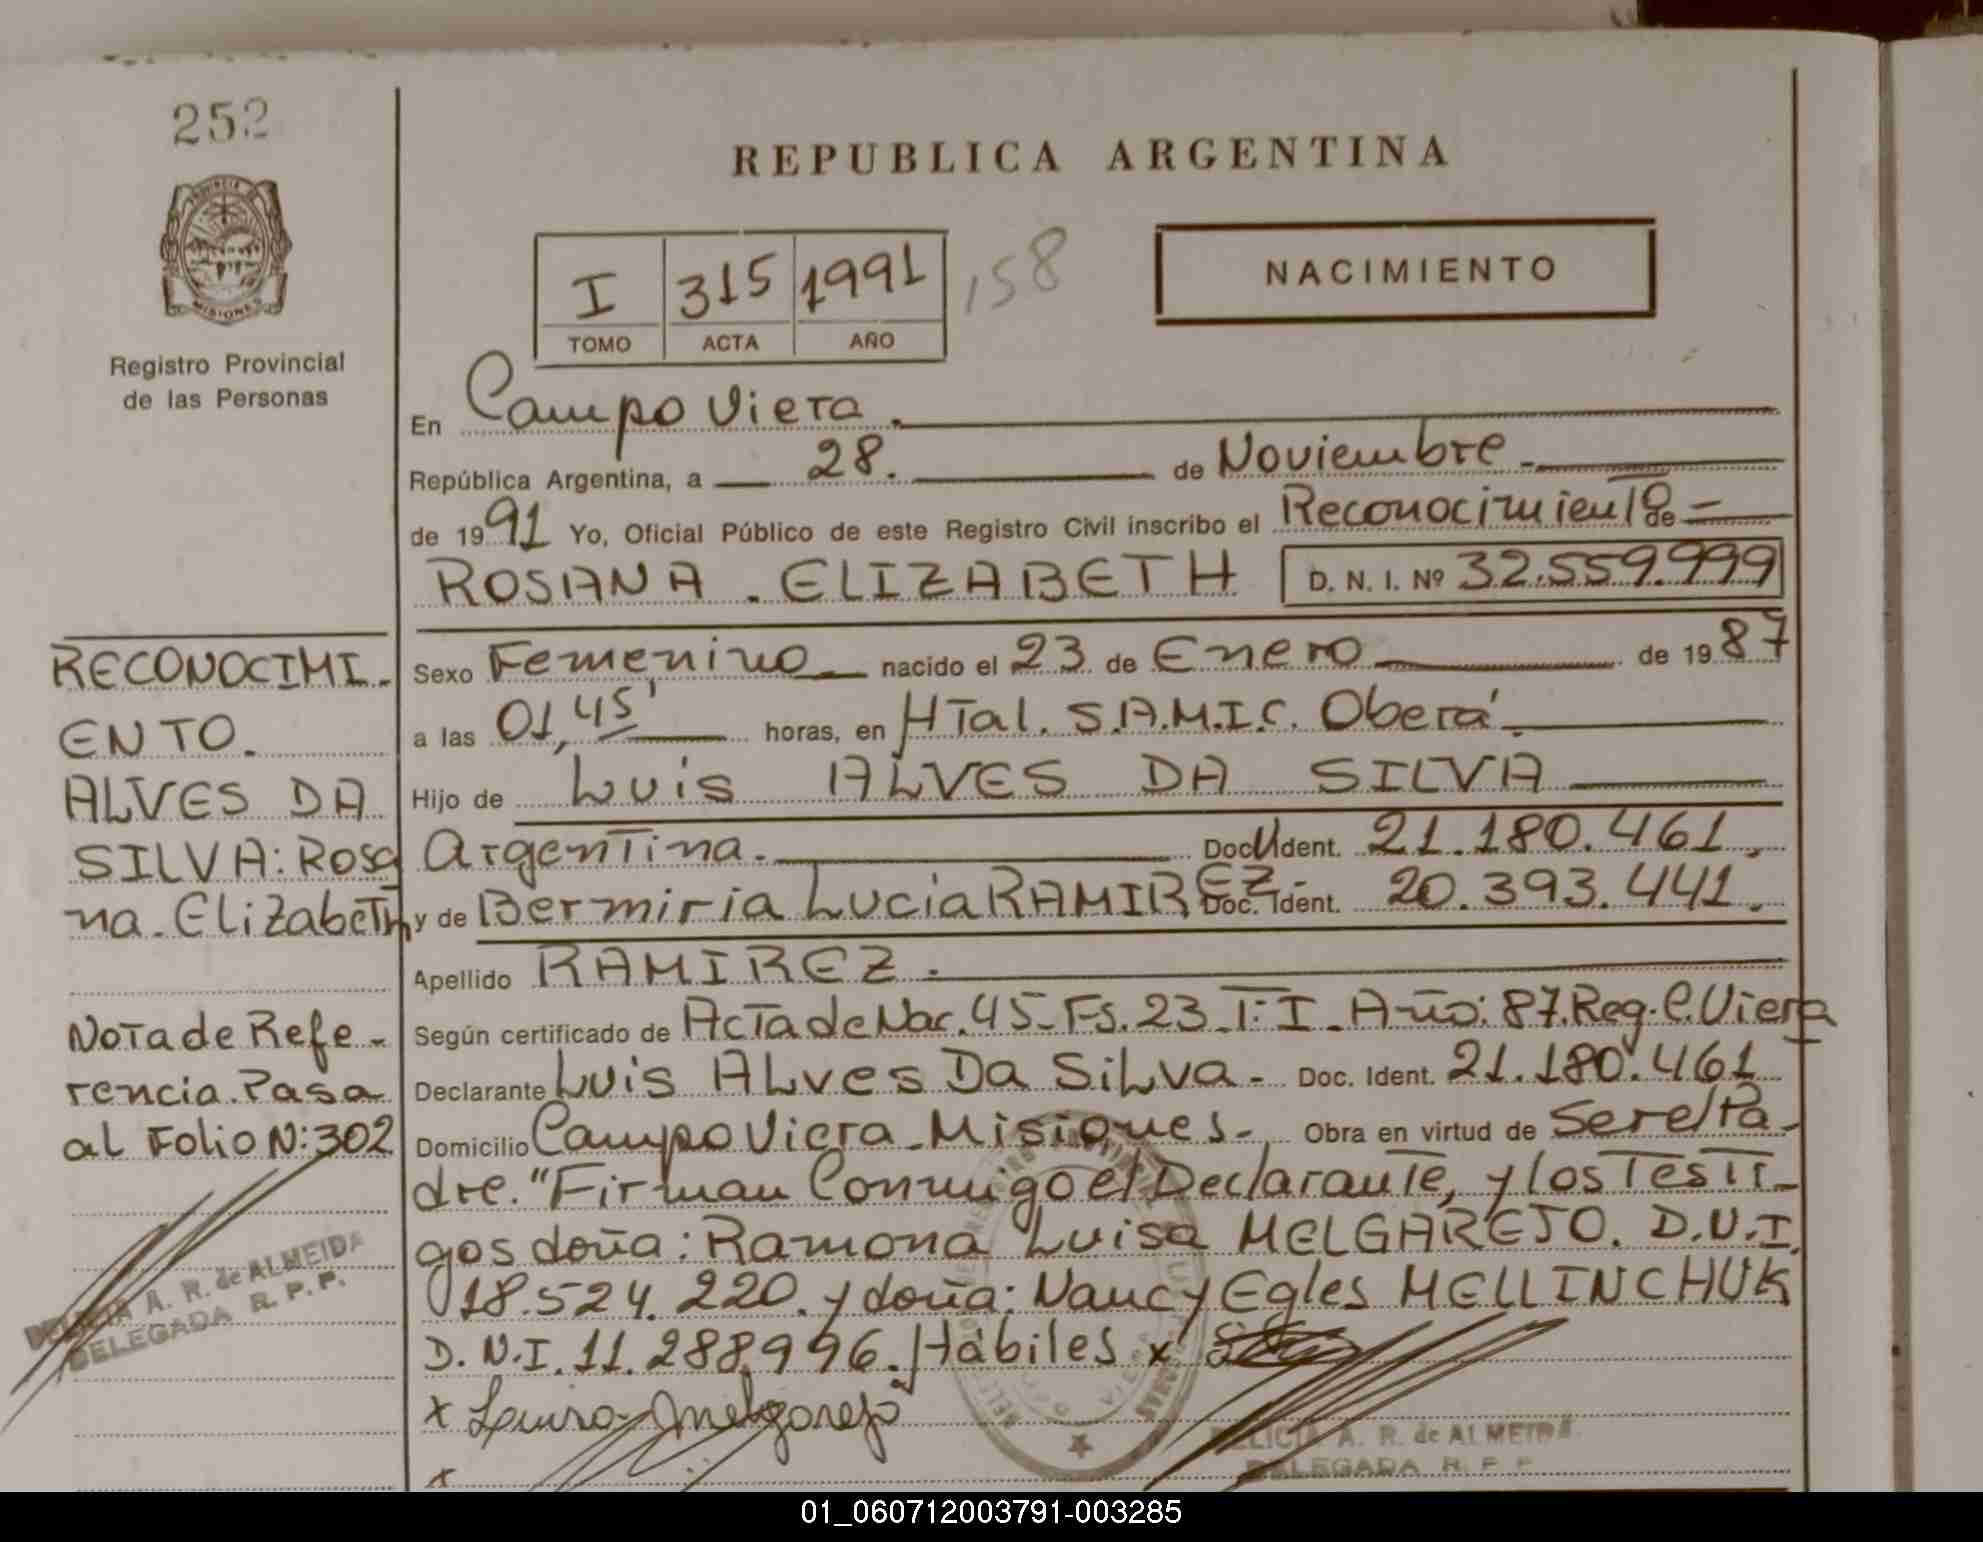 252
PROVINCIA DE
MISIONES
Registro Provincial
de las Personas
REPUBLICA ARGENTINA
I 315 1991 158
TOMO ACTA AÑO
NACIMIENTO
En Campo Viera.
República Argentina, a 28. de Noviembre
de 1991 Yo, Oficial Público de este Registro Civil inscribo el Reconocimiento de
ROSANA. ELIZABETH D. N. I. Nº 32.559.999
Sexo Femenino nacido el 23 de Enero de 1987
a las 01,45' horas, en HTal. S.A.M.I.C. Oberá.
Hijo de Luis ALVES DA SILVA
Argentina. Doc. Ident. 21.180.461.
y de Bermiria Lucia RAMIREZ.- Doc. Ident. 20.393.441.
Apellido RAMIREZ.
Según certificado de Acta de Nac. 45-Fs. 23-T: I. Año: 87. Reg. C. Viera
Declarante Luis ALves Da SiLva- Doc. Ident. 21.180.461
Domicilio Campo Viera-Misiones- Obra en virtud de Ser el Pa-
dre. "Firman Conmigo el Declarante, y los Testi-
gos doña: Ramona Luisa MELGAREJO. D.N.I.
18.524.220. y doña: Nancy Egles MELLINCHUK
D.N.I. 11.288.996. Hábiles x
x Luisa Melgarejo
x
RECONOCIMI-
ENTO.
ALVES DA
SILVA: Rosa
na. Elizabeth
Nota de Refe-
rencia. Pasa
al Folio N: 302
DELICIA A. R. de ALMEIDA
DELEGADA R. P. P.
DELICIA A. R. de ALMEIDA
DELEGADA R. P. P.
01_060712003791-003285